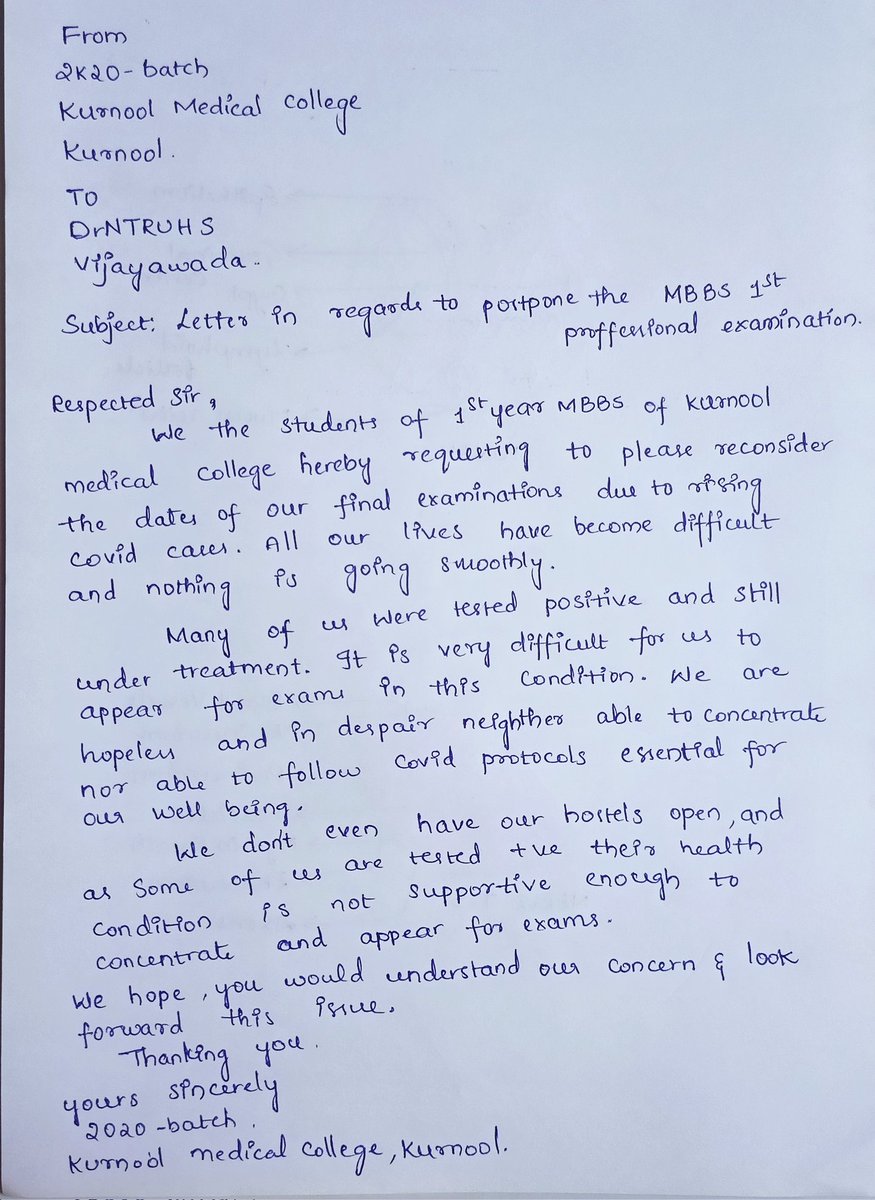 From
2K20 - batch
Kurnool Medical college
Kurnool.
TO
DrNTRUHS
Vijayawada.
Subject: Letter in regards to postpone the MBBS 1st
proffessional examination.
Respected Sir,
We the students of 1st year MBBS of Kurnool
medical college hereby requesting to please reconsider
the dates of our final examinations due to rising
covid cases. All our lives have become difficult
and nothing is going smoothly.
Many of us were tested positive and still
under treatment. It is very difficult for us to
appear for exams in this condition. We are
hopeless and in despair neighther able to concentrate
nor able to follow covid protocols essential for
our well being.
We don't even have our hostels open, and
as some of us are tested +ve their health
condition is not supportive enough to
concentrate and appear for exams.
We hope, you would understand our concern & look
forward this issue.
Thanking you.
yours sincerely
2020 - batch.
Kurnool medical college, Kurnool.